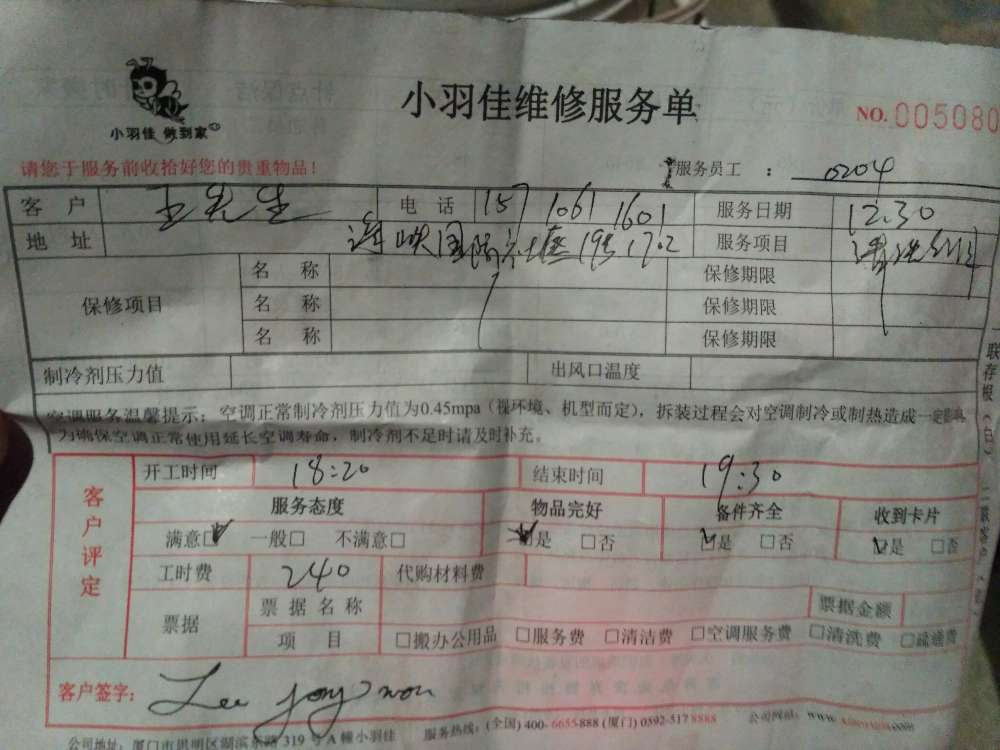 小羽佳 做到家
小羽佳维修服务单
NO. 005080
请您于服务前收拾好您的贵重物品！
服务员工 ： 0204
客 户 王先生 电 话 157 1061 1601 服务日期 12.30
地 址 国际 1702 服务项目 清洗
保修项目
名 称 保修期限
名 称 保修期限
名 称 保修期限
制冷剂压力值 出风口温度
空调服务温馨提示：空调正常制冷剂压力值为0.45mpa（视环境、机型而定），拆装过程会对空调制冷或制热造成一定影响
为确保空调正常使用延长空调寿命，制冷剂不足时请及时补充。
客户评定
开工时间 18:20 结束时间 19:30
服务态度 物品完好 备件齐全 收到卡片
满意□ 一般□ 不满意□ □是 □否 □是 □否 □是 □否
工时费 240 代购材料费
票据 票据名称 票据金额
项 目 □搬办公用品 □服务费 □清洁费 □空调服务费 □清洗费 □疏通费
客户签字： Lee
公司地址：厦门市思明区湖滨东路 319 号A幢小羽佳 服务热线：(全国) 400-6655-888 (厦门) 0592-517 8888 公司网站：www.
一联存根（白）